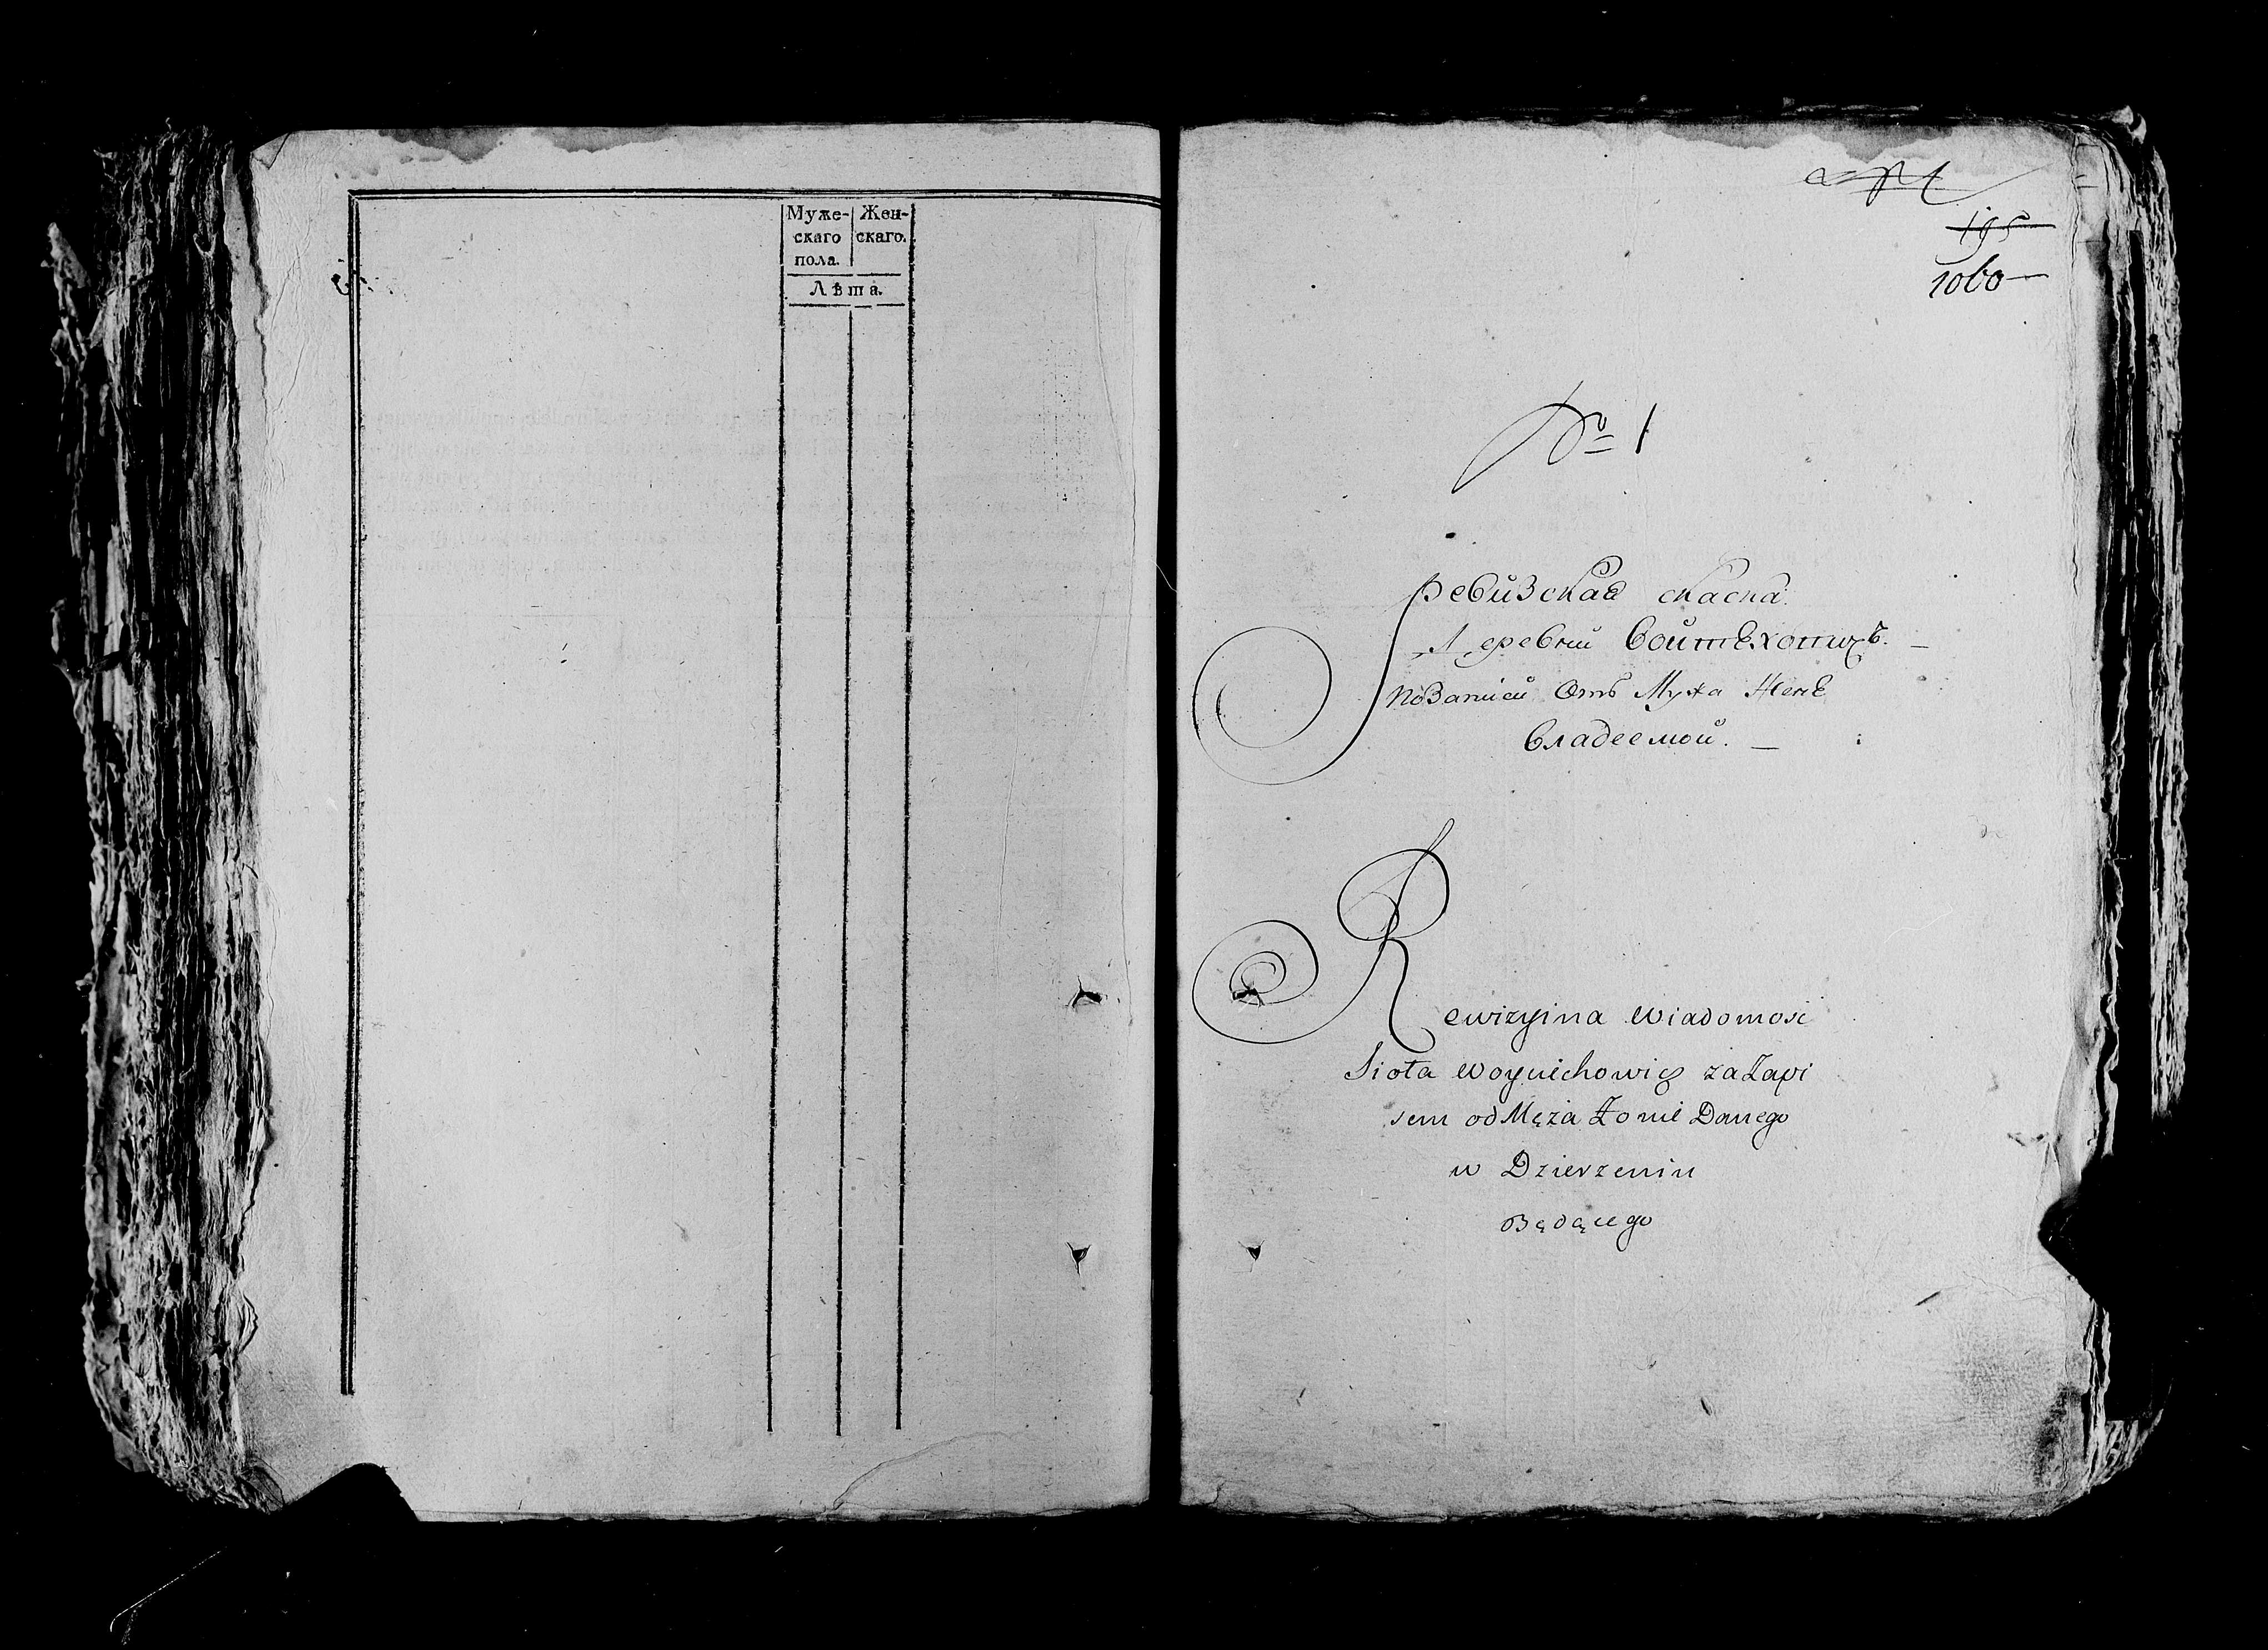 Муже- Жен-
скаго скаго.
пола.
Лѣта.
195
1060
№ 1
Ревизская скаска.
Деревни Войтѣховичъ.
По Записи Отъ Мужа Женѣ
Владеемой.
Rewizyina Wiadomosc
Sioła Woyciechowicz za Zapi
sem od Męża Zonie Danego
w Dzierzeniu
Będącego